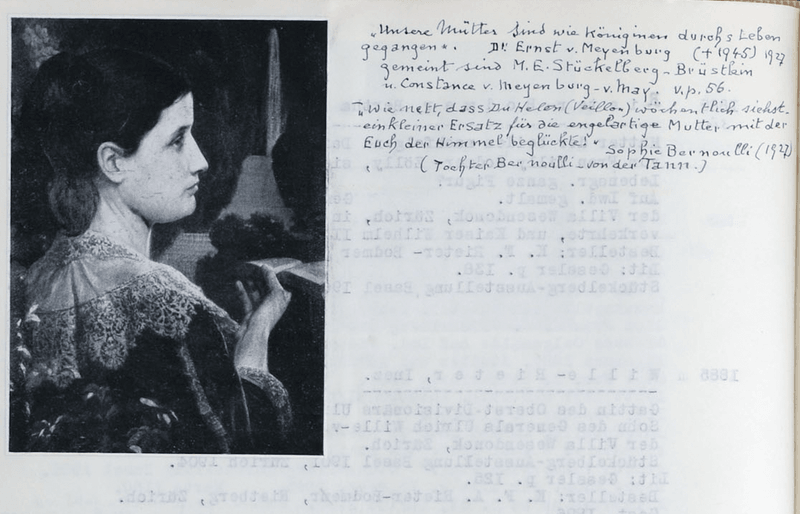 „Unsere Mütter sind wie Königinnen durchs Leben
gegangen“. Dr. Ernst v. Meyenburg († 1945) 1927
gemeint sind M. E. Stückelberg-Brüstlein
u. Constance v. Meyenburg-v. May. v. p. 56.
„Wie nett, dass Du Helen (Veillon) wöchentlich siehst.
ein kleiner Ersatz für die engelartige Mutter mit der
Euch der Himmel beglückte!“
Sophie Bernoulli (1927)
(Tochter Bernoulli-von der Tann.)
Lebensgr. ganze Figur.
Auf Lwd. gemalt.
der Villa Wesendonck, Zürich, in
verkehrte, und Kaiser Wilhelm II
Besteller: K. F. Rieter-Bodmer
Lit: Gessler p. 126.
Stückelberg-Ausstellung Basel
1865 Wille-Rieter, Inas.
Gattin des Oberst-Divisionärs Ul
Sohn des Generals Ulrich Wille-v.
der Villa Wesendonck, Zürich.
Stückelberg-Ausstellung Basel 1901, Zürich 1904.
Lit: Gessler p. 126.
Besteller: K. F. A. Rieter-Bodmer, Rietberg, Zürich.